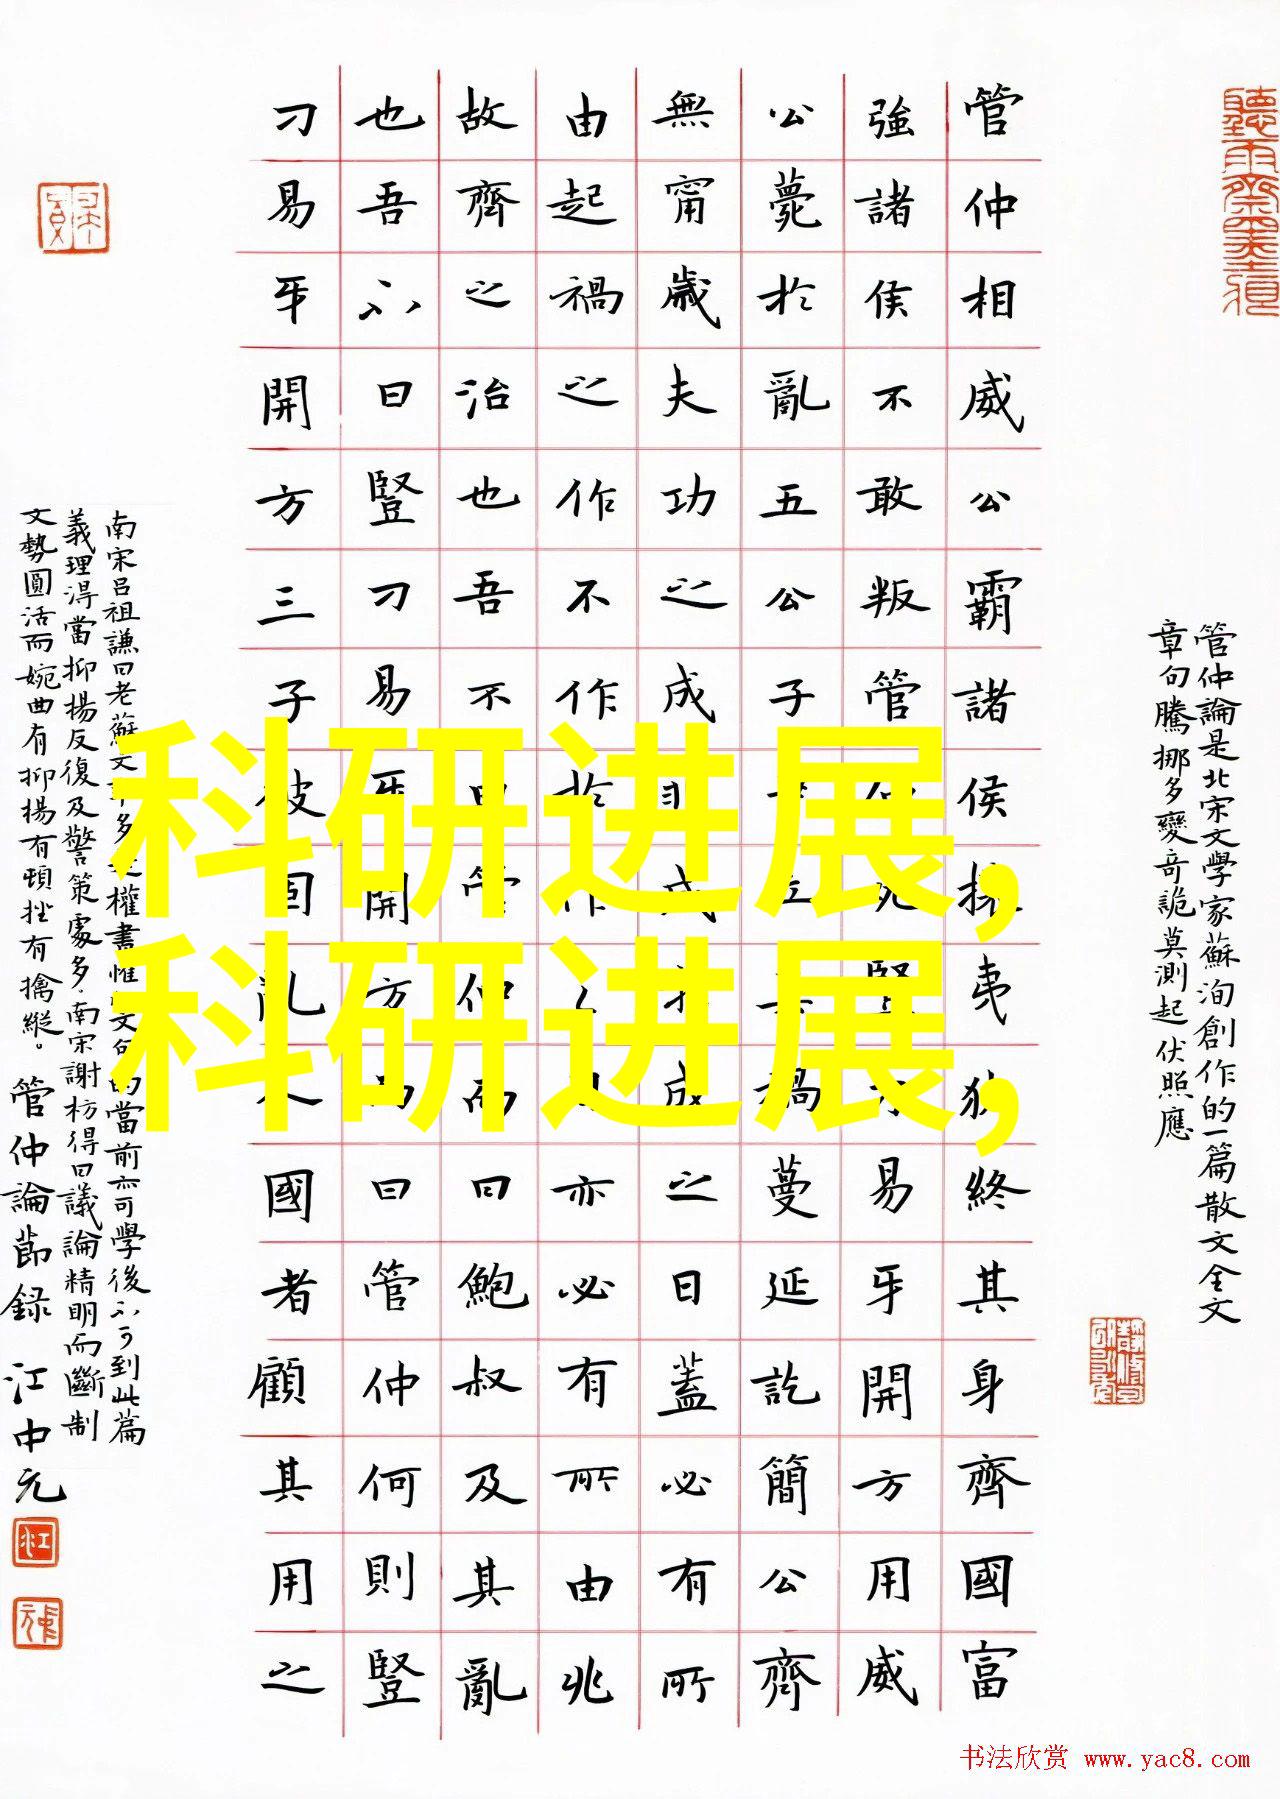 管仲論是北宋文學家蘇洵創作的一篇散文全文
章句騰挪多變奇詭莫測起伏照應
管仲相威公霸諸侯攘夷狄終其身齊國富
強諸侯不敢叛管仲死豎刁易牙開方用威
公薨於亂五公子爭立其禍蔓延訖簡公齊
無甯歲夫功之成非成於成之日蓋必有所
由起禍之作不作於作之日亦必有所由兆
故齊之治也吾不曰管仲而曰鮑叔及其亂
也吾不曰豎刁易牙開方而曰管仲何則豎
刁易牙開方三子彼固亂人國者顧其用之
南宋呂祖謙曰老蘇文多權書惟文的當前亦可學後不可到此篇
義理淂當抑揚反復及警策處多。南宋謝枋得曰議論精明而斷制
文勢圓活而婉曲有抑揚有頓挫有擒縱。管仲論節錄 江中元
科研进展,
科研进展,
书法欣赏 www.yac8.com